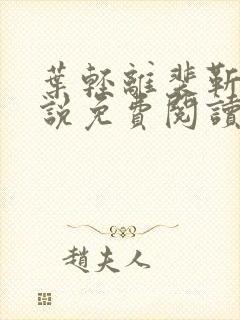 葉輕離裴靳
說免費閱讀
趙夫人